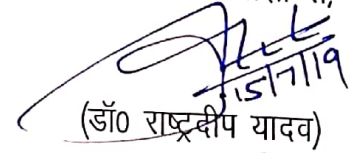 15/7/19
(डॉ0 राष्ट्रदीप यादव)